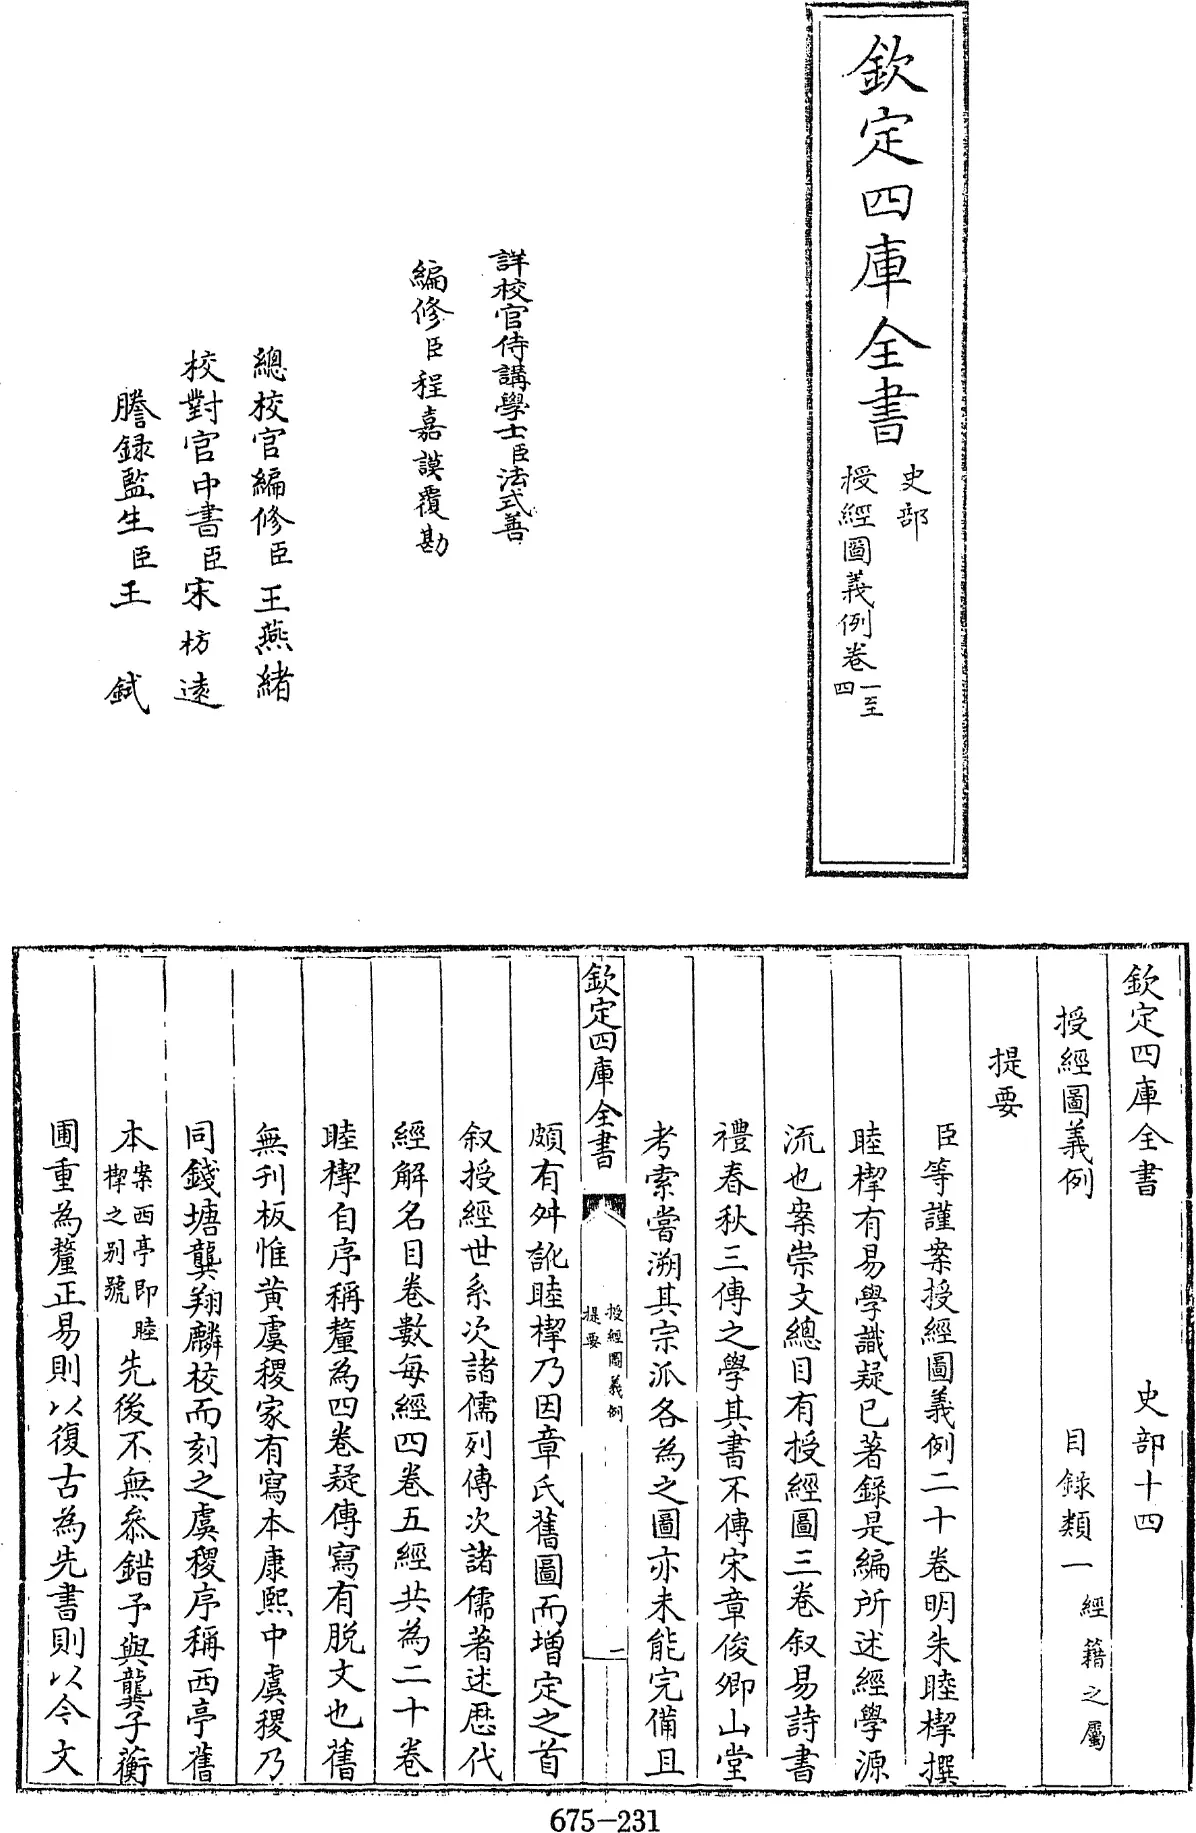 欽定四庫全書
史部
授經圖義例卷一至四
詳校官侍講學士臣法式善
編修臣程嘉謨覆勘
總校官編修臣王燕緒
校對官中書臣宋枋遠
謄錄監生臣王鉽
欽定四庫全書 史部十四
授經圖義例 目錄類一經籍之屬
提要
臣等謹案授經圖義例二十卷明朱睦㮮撰
睦㮮有易學識疑已著錄是編所述經學源
流也案崇文總目有授經圖三卷叙易詩書
禮春秋三傳之學其書不傳宋章俊卿山堂
考索嘗溯其宗派各為之圖亦未能完備且
欽定四庫全書 授經圖義例 提要 一
頗有舛訛睦㮮乃因章氏舊圖而增定之首
叙授經世系次諸儒列傳次諸儒著述歷代
經解名目卷數每經四卷五經共為二十卷
睦㮮自序稱釐為四卷疑傳寫有脫文也舊
無刋板惟黄虞稷家有寫本康熙中虞稷乃
同錢塘龔翔麟校而刻之虞稷序稱西亭舊
本案西亭即睦㮮之别號先後不無叅錯予與龔子蘅
圃重為釐正易則以復古為先書則以今文
675-231